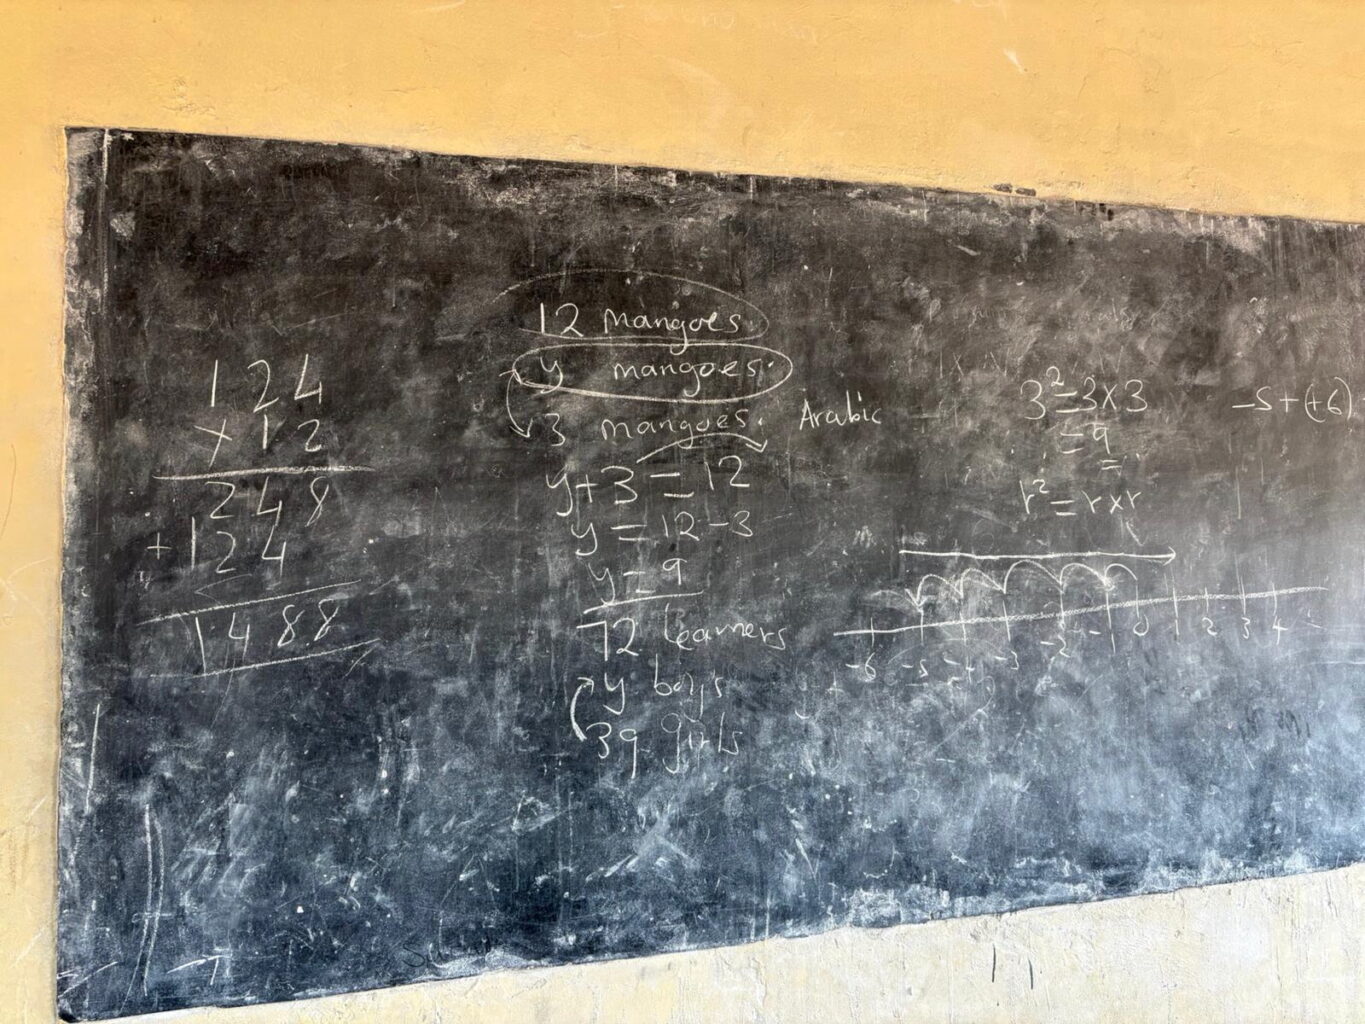 124
× 12
248
+ 124
1488
12 mangoes.
y mangoes.
3 mangoes. Arabic
y + 3 = 12
y = 12 - 3
y = 9
72 learners
y boys
39 girls
3² = 3 × 3
= 9
r² = r × r
-5 + (+6)
-6 -5 -4 -3 -2 -1 0 1 2 3 4